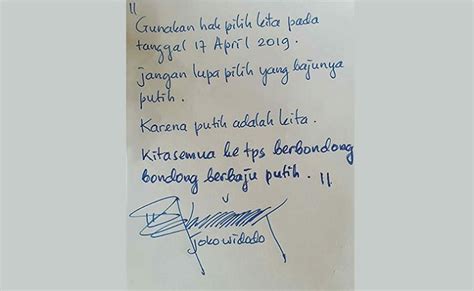 "
Gunakan hak pilih kita pada
tanggal 17 April 2019.
jangan lupa pilih yang bajunya
putih.
Karena putih adalah kita.
Kitasemua ke tps berbondong
bondong berbaju putih. "
joko widodo